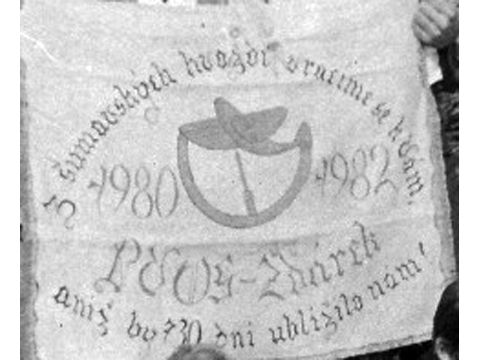 Z šumavských hvozdů vrátíme se k Vám,
1980 1982
PŠOS-Žďárek
aniž by 730 dní ublížilo nám!